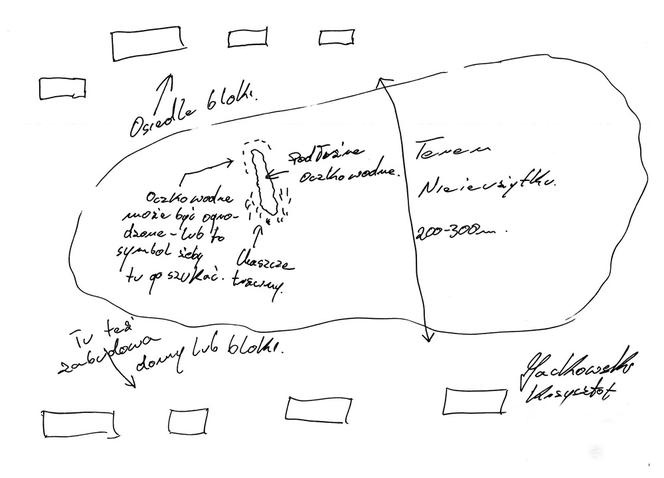 Osiedle bloki.
Podłużne
oczko wodne.
Oczko wodne
może być ogro-
dzone - lub to
symbol żeby
tu go szukać.
Chaszcze
trawiny.
Teren
Nieużytku.
200-300m.
Tu też
zabudowa
domy lub bloki.
Jackowski
Krzysztof